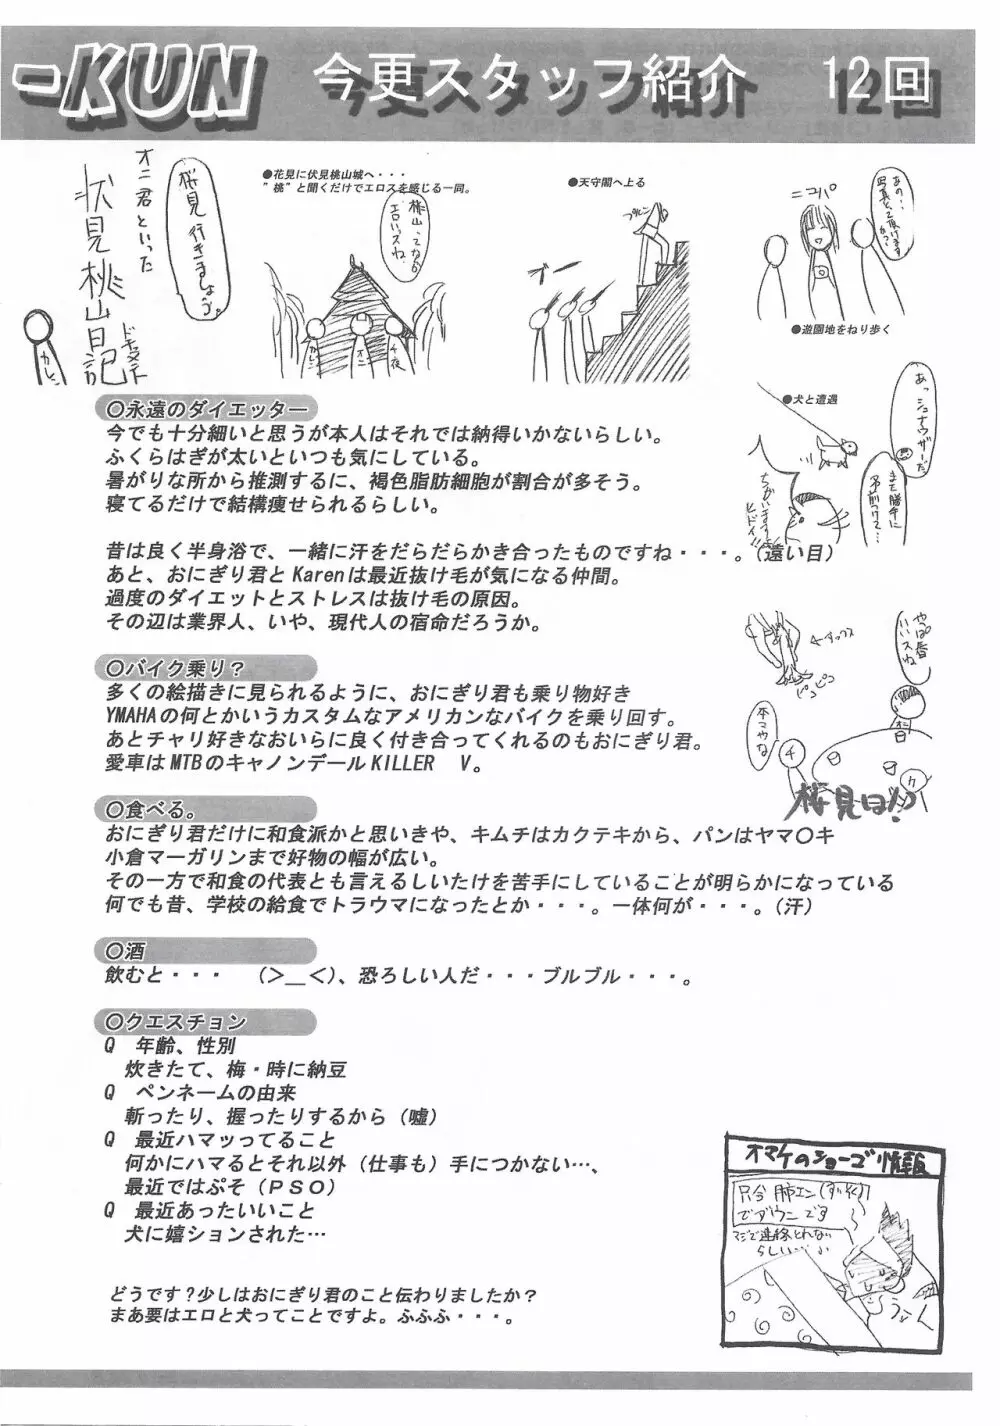 -KUN 今更スタッフ紹介 12回
桜見行きましょう。
オニ君といった
伏見桃山日記
カレン
●花見に伏見桃山城へ・・・
"桃"と聞くだけでエロスを感じる一同。
桃山ってなんか
エロいっスね
カレン
オニ
千夜
●天守閣へ上る
ブー
あの・・
写真とって頂けます
かっ?
ニコパ
●遊園地をねり歩く
●犬と遭遇
あっ
シュナウザーだ
また勝手に
名前つけて…
ちがいます
ヒドイ!!
〇永遠のダイエッター
今でも十分細いと思うが本人はそれでは納得いかないらしい。
ふくらはぎが太いといつも気にしている。
暑がりな所から推測するに、褐色脂肪細胞が割合が多そう。
寝てるだけで結構痩せられるらしい。
昔は良く半身浴で、一緒に汗をだらだらかき合ったものですね・・・。(遠い目)
あと、おにぎり君とKarenは最近抜け毛が気になる仲間。
過度のダイエットとストレスは抜け毛の原因。
その辺は業界人、いや、現代人の宿命だろうか。
やっぱ春
いいスね
ピコピコ
本マやな
オニ
チ
カ
桜見は!?
〇バイク乗り?
多くの絵描きに見られるように、おにぎり君も乗り物好き
YMAHAの何とかいうカスタムなアメリカンなバイクを乗り回す。
あとチャリ好きなおいらに良く付き合ってくれるのもおにぎり君。
愛車はMTBのキャノンデールKILLER V。
〇食べる。
おにぎり君だけに和食派かと思いきや、キムチはカクテキから、パンはヤマ〇キ
小倉マーガリンまで好物の幅が広い。
その一方で和食の代表とも言えるしいたけを苦手にしていることが明らかになっている
何でも昔、学校の給食でトラウマになったとか・・・。一体何が・・・。(汗)
〇酒
飲むと・・・ (>__<)、恐ろしい人だ・・・ブルブル・・・。
〇クエスチョン
Q 年齢、性別
炊きたて、梅・時に納豆
Q ペンネームの由来
斬ったり、握ったりするから(嘘)
Q 最近ハマッってること
何かにハマるとそれ以外(仕事も)手につかない…、
最近ではぷそ(PSO)
Q 最近あったいいこと
犬に嬉ションされた…
どうです?少しはおにぎり君のこと伝わりましたか?
まあ要はエロと犬ってことですよ。ふふふ・・・。
オマケのショーゴ情報
只今肺エン
でダウンです
マジで連絡とれない
らしい…
うーん